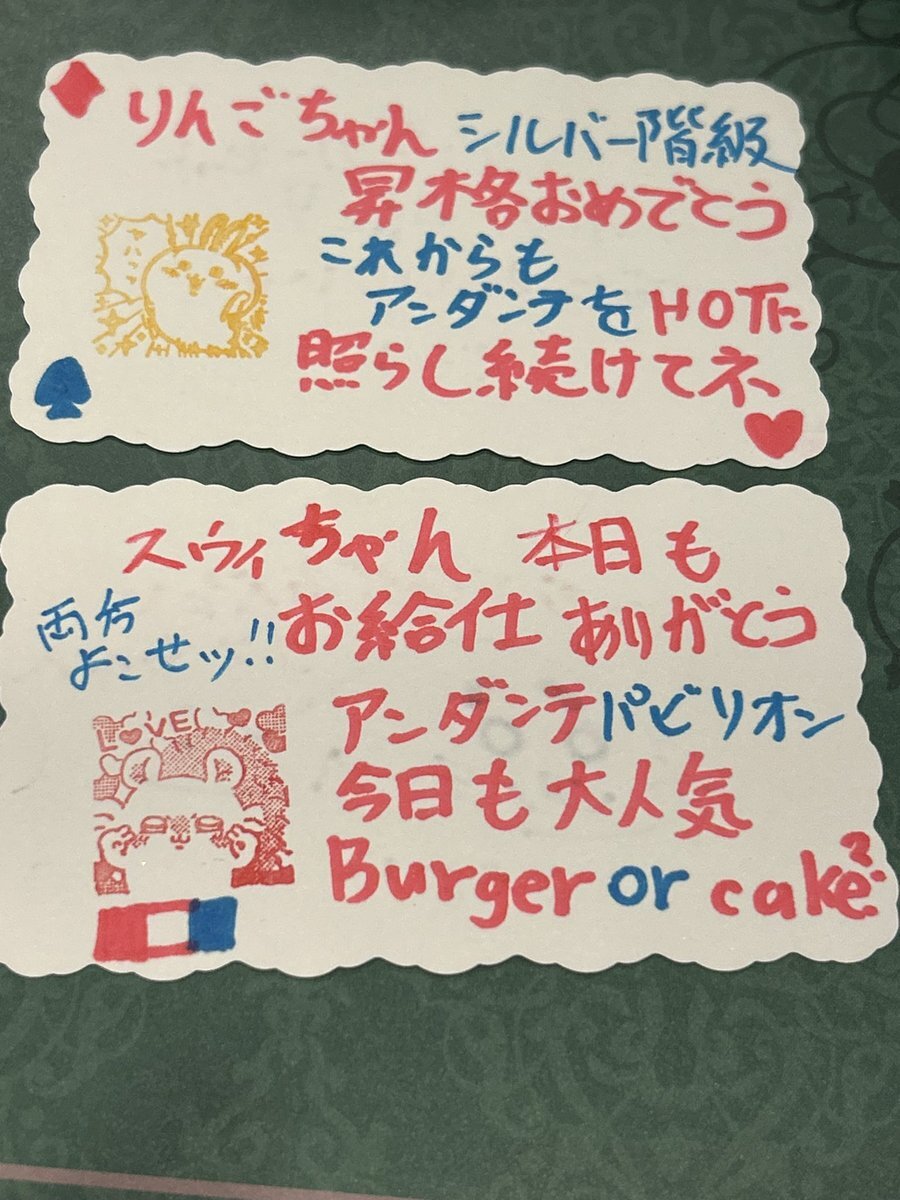 りんごちゃん シルバー階級
昇格おめでとう
これからも
アンダンテを HOTに
照らし続けてネ
スウィちゃん 本日も
両方
よこせッ!!
お給仕 ありがとう
LOVE
アンダンテパビリオン
今日も大人気
Burger or cake?